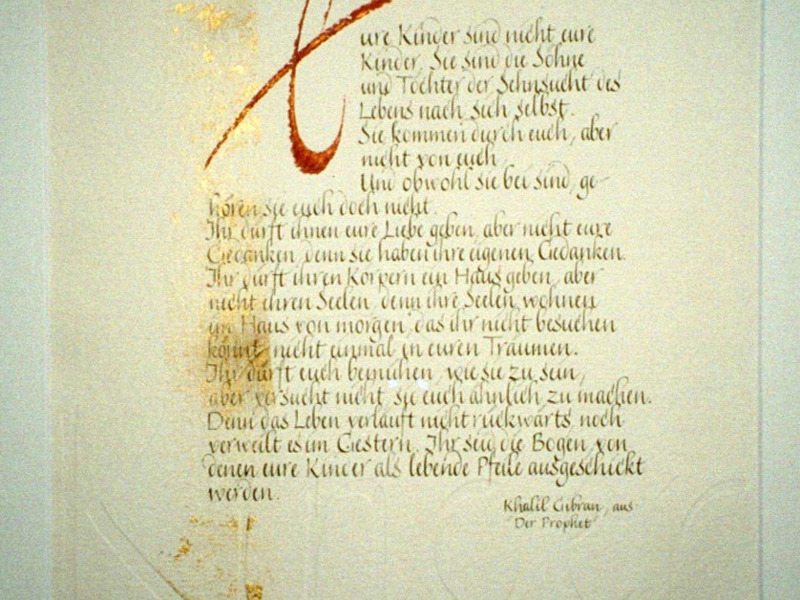 Eure Kinder sind nicht eure
Kinder. Sie sind die Söhne
und Töchter der Sehnsucht des
Lebens nach sich selbst.
Sie kommen durch euch, aber
nicht von euch,
Und obwohl sie bei sind, ge-
hören sie euch doch nicht.
Ihr dürft ihnen eure Liebe geben, aber nicht eure
Gedanken, denn sie haben ihre eigenen Gedanken.
Ihr dürft ihren Körpern ein Haus geben, aber
nicht ihren Seelen, denn ihre Seelen wohnen
im Haus von morgen, das ihr nicht besuchen
könnt, nicht einmal in euren Träumen.
Ihr dürft euch bemühen, wie sie zu sein,
aber versucht nicht, sie euch ähnlich zu machen.
Denn das Leben verläuft nicht rückwärts noch
verweilt es im Gestern. Ihr seid die Bogen, von
denen eure Kinder als lebende Pfeile ausgeschickt
werden.
Khalil Gibran, aus
"Der Prophet"